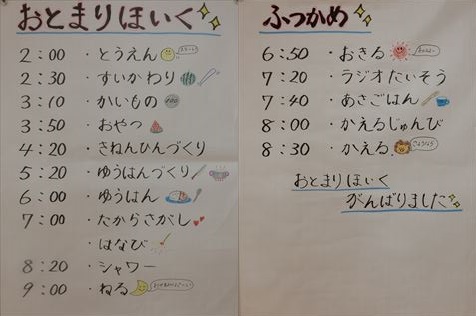 おとまりほいく
2:00 ・とうえん
2:30 ・すいかわり
3:10 ・かいもの
3:50 ・おやつ
4:20 ・さねんひんづくり
5:20 ・ゆうはんづくり
6:00 ・ゆうはん
7:00 ・たからさがし
・はなび
8:20 ・シャワー
9:00 ・ねる
ふつかめ
6:50 ・おきる
7:20 ・ラジオたいそう
7:40 ・あさごはん
8:00 ・かえるじゅんび
8:30 ・かえる
おとまりほいく
がんばりました